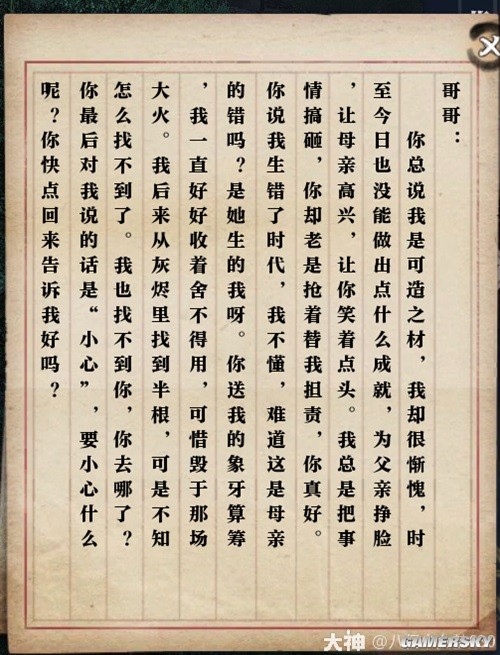 哥哥：
你总说我是可造之材，我却很惭愧，时
至今日也没能做出点什么成就，为父亲挣脸
，让母亲高兴，让你笑着点头。我总是把事
情搞砸，你却老是抢着替我担责，你真好。
你说我生错了时代，我不懂，难道这是母亲
的错吗？是她生的我呀。你送我的象牙算筹
，我一直好好收着舍不得用，可惜毁于那场
大火。我后来从灰烬里找到半根，可是不知
怎么找不到了。我也找不到你，你去哪了？
你最后对我说的话是“小心”，要小心什么
呢？你快点回来告诉我好吗？
大神
GAMERSKY